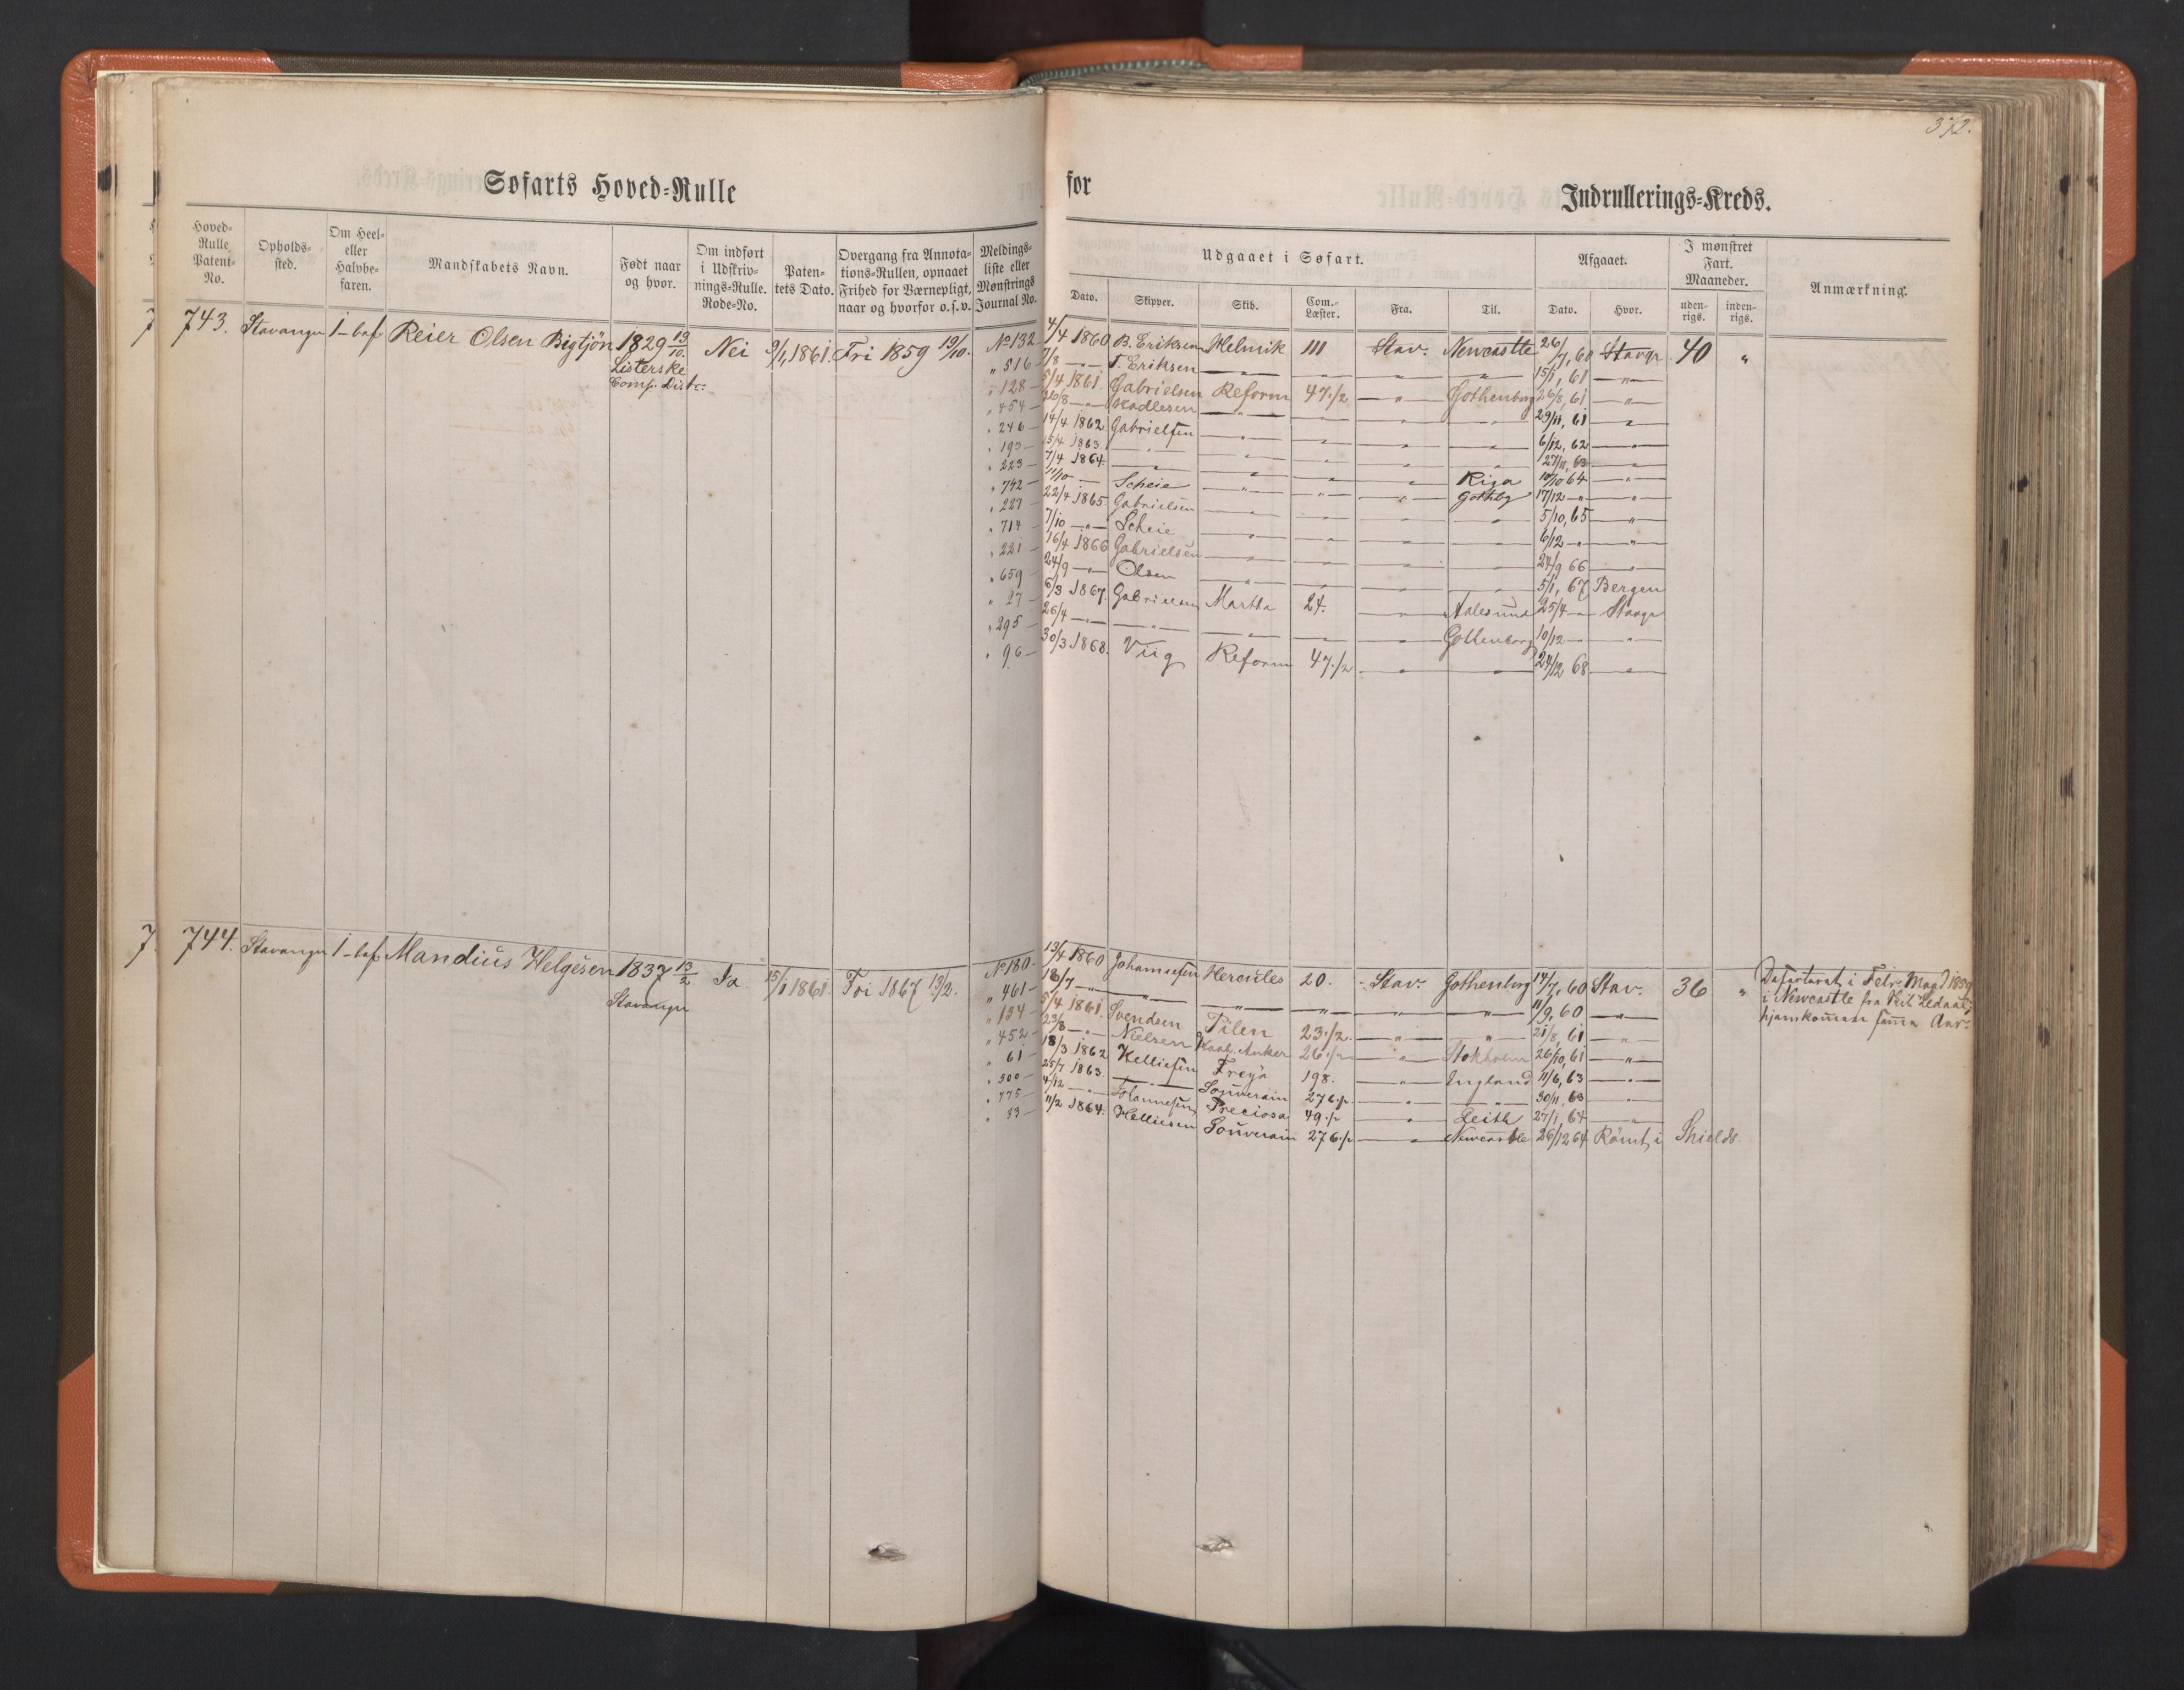 372.
Søfarts Hoved-Rulle for Indrullerings-Kreds.
Hoved-Rulle Patent-No. Opholds-sted. Om Heel- eller Halvbe-faren. Mandskabets Navn. Født naar og hvor. Om indført i Udskriv-nings-Rulle. Rode-No. Paten-tets Dato. Overgang fra Annota-tions-Rullen, opnaaet Frihed for Værnepligt, naar og hvorfor o.s.v. Meldings-liste eller Mønstrings Journal No.
Udgaaet i Søfart. Afgaaet. I mønstret Fart. Maaneder. Anmærkning.
Dato. Skipper. Skib. Com.-Læster. Fra. Til. Dato. Hvor. uden-rigs. inden-rigs.
743. Stavanger 1-bef Reier Olsen Bigtjön 1829 19/10. Nei 9/1, 1861. Fri 1859 19/10. No 132 4/4 1860 B. Eriksen Helmik 111 Stav. Newcastle 26/7, 60 Stavgr 40 "
Listerske
Comp. Distr:
" 516 — 7/8 — " — T. Eriksen — " — — " — — " — — " — 15/1, 61 — " —
" 128 — 5/4 1861. Gabrielsen Reform 47 1/2 — " — Gothenborg 26/8, 61 — " —
" 454 — 26/8 — " — Kadlesen — " — — " — — " — — " — 29/11, 61 — " —
" 246 — 14/4 1862 Gabrielsen — " — — " — — " — — " — 6/12, 62 — " —
" 193 — 15/4 1863. — " — — " — — " — — " — — " — 27/11, 63 — " —
" 223 — 7/4 1864. — " — — " — — " — — " — Riga 10/10 64 — " —
" 742 — 11/10 — Scheie — " — — " — — " — Gothbg 17/12 — " — — " —
" 227 — 22/4 1865 Gabrielsen — " — — " — — " — — " — 5/10, 65 — " —
" 714 — 7/10 — " — Scheie — " — — " — — " — — " — 6/12 — " — — " —
" 221 — 16/4 1866 Gabrielsen — " — — " — — " — — " — 24/9 66 — " —
" 659 — 24/9 — " — Olsen — " — — " — — " — — " — 5/1, 67 Bergen
" 27 — 6/3 1867. Gabrielsen Martha 24. — " — Aalesund 25/4 — " — Stavgr
" 295 — 26/4 — " — — " — — " — — " — — " — Gothenborg 10/12 — " — — " —
" 96 — 30/3 1868. Viig Reform 47 1/2 — " — — " — 24/12 68 — " —
744. Stavanger 1-bef Mandius Helgesen 1837 13/2 Ja 15/1 1861. Fri 1867 13/2. No 180. 13/4 1860 Johannesen Hercules 20. Stav. Gothenborg 14/7, 60 Stav. 36 "
Stavanger
Desarterat i Febr. Maad 1859
i Newcastle fra Kit. Zedaal,
hjemkommen samme Aar.
" 461 — 18/7 — " — — " — — " — — " — — " — — " — 11/9, 60 — " —
" 134 — 5/4 1861. Svendsen Pilen 23 1/2 — " — — " — 21/8, 61 — " —
" 452 — 23/8 — " — Nielsen Haab. Anker 26 1/2 — " — Stokholm 26/10, 61 — " —
" 61 — 18/3 1862 Helliesen Freya 198. — " — England 11/6, 63 — " —
" 500 — 25/7 1863. — " — Souverain 276 1/2 — " — — " — 30/11, 63 — " —
" 775 — 4/12 — " — Johannesen Preciosa 49 1/2 — " — Leith 27/1, 64 — " —
" 83 — 11/2 1864. Helliesen Souverain 276 1/2 — " — Newcastle 26/12 64 Römt i Shields.